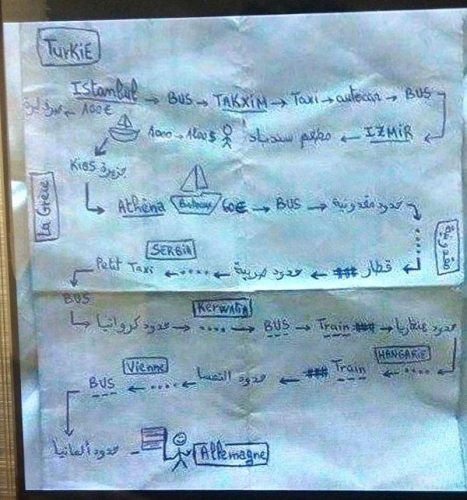 TurKiE
Istanbul → BUS → TAKXIM → Taxi → autocar → BUS
100€ ←
1000 → 1200$ مطعم سندباد ← IZMIR
KIOS جزيرة
La Grèce
Athéna Bateau 60€ → BUS → حدود مقدونية
مقدونية
SERBIA
Petit Taxi ← .... ← حدود صربية ← ### قطار ←
BUS
KerwaTia
حدود كرواتيا → .... → BUS → Train ### → حدود هنغاريا
HANGARiE
Vienne
BUS ← .... ← حدود النمسا ← ### Train ← ....
حدود ألمانيا
Allemagne